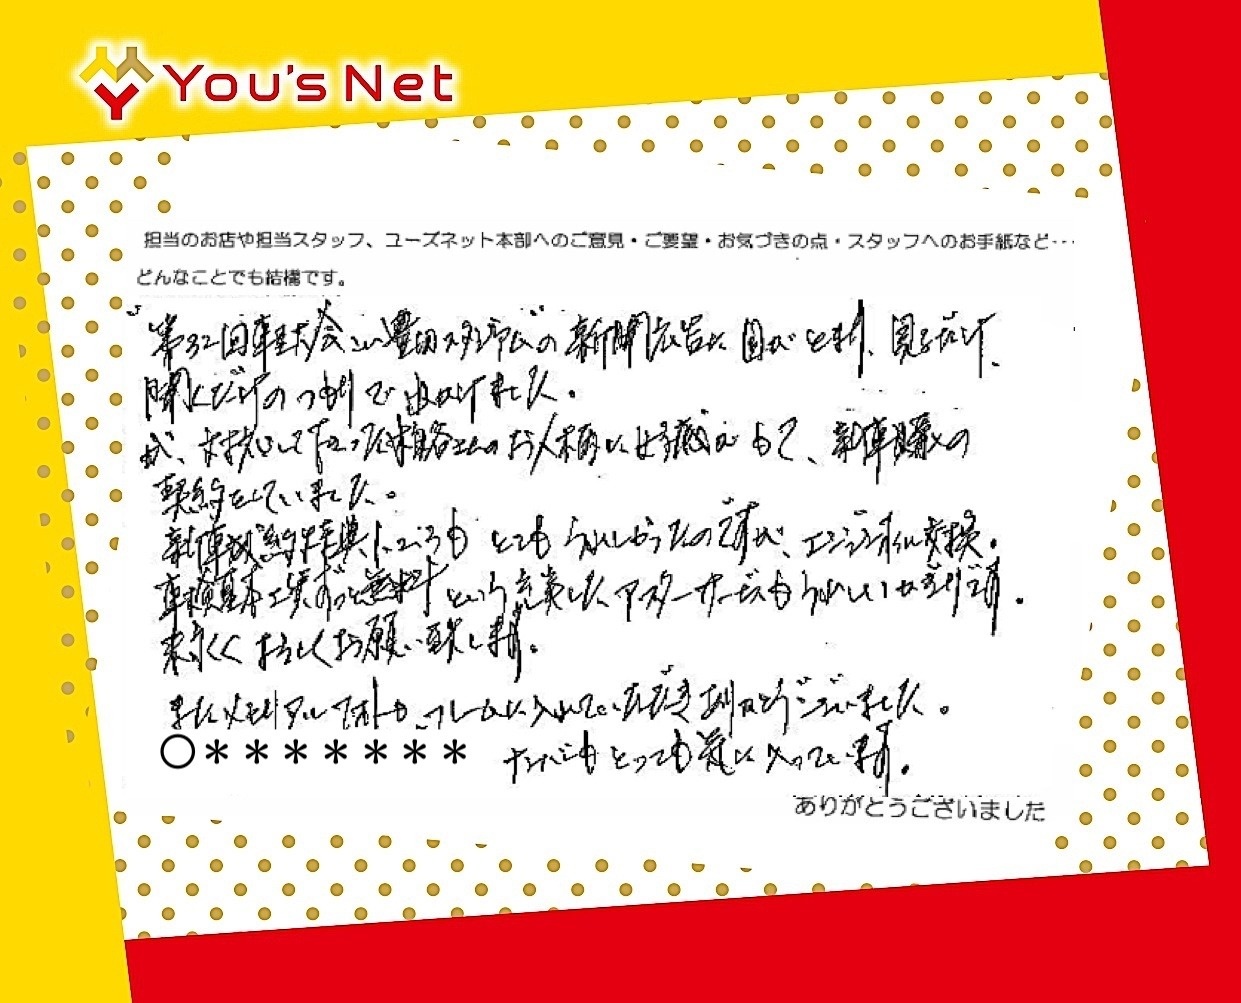 You's Net
担当のお店や担当スタッフ、ユーズネット本部へのご意見・ご要望・お気づきの点・スタッフへのお手紙など…
どんなことでも結構です。
第32回軽大会in豊田スタジアムの新聞広告に目がとまり、見るだけ、
聞くだけのつもりで出かけました。
が、対応して下さったさんのお人柄に好感がもて、新車購入の
契約をしていました。
新車成約特典 とてもうれしかったのですが、エンジンオイル交換、
車検基本工賃ずっと無料という充実したアフターサービスもうれしいかぎりです。
末永くよろしくお願い致します。
またメモリアルフォトも、フレームに入れていただきありがとうございました。
○******* ナンバーもとっても気に入っています。
ありがとうございました